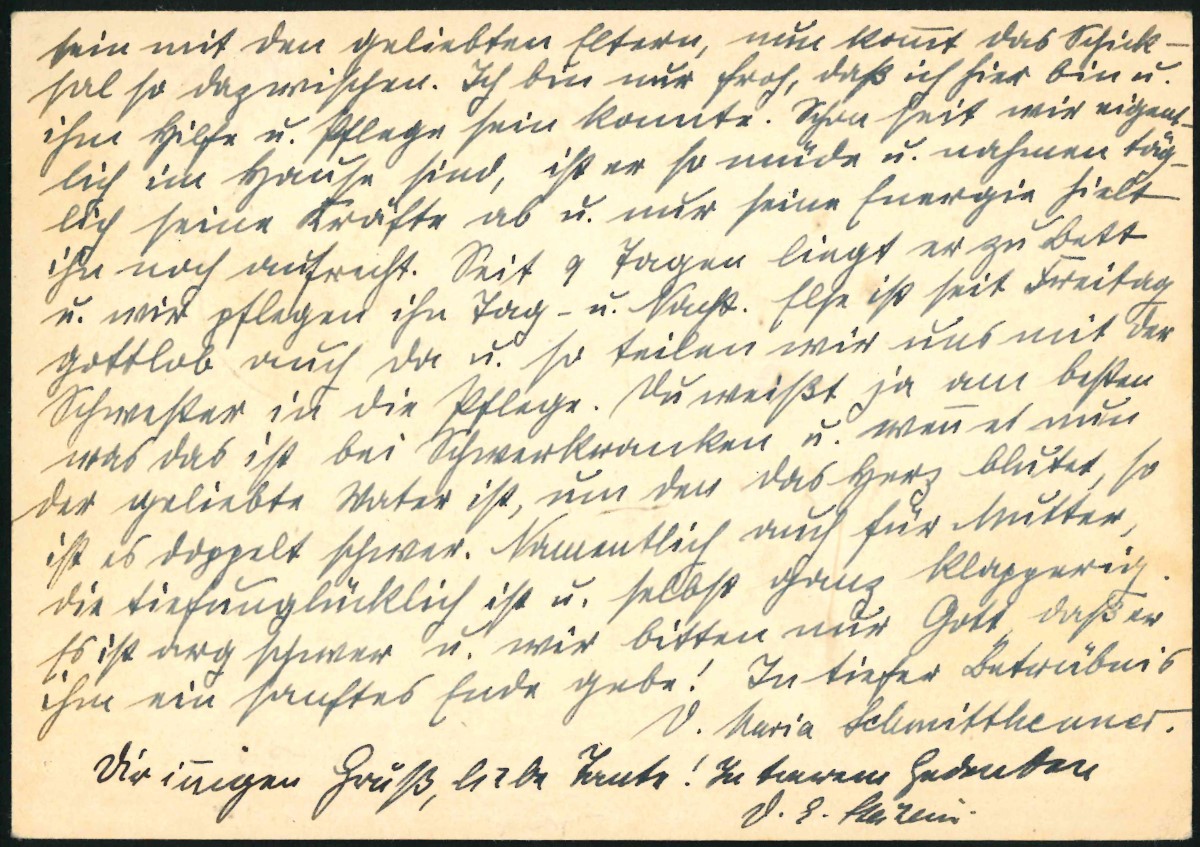 sein mit den geliebten Eltern, nun kom̅t das Schick-
sal so dazwischen. Ich bin nur froh, daß ich hier bin u.
ihm Hilfe u. Pflege sein konnte. Schon seit wir eigent-
lich im Hause sind, ist er so müde u. nahmen täg-
lich seine Kräfte ab u. nur seine Energie hielt
ihn noch aufrecht. Seit 9 Tagen liegt er zu Bett
u. wir pflegen ihn Tag- u. Nacht. Else ist seit Freitag
gottlob auch da u. so teilen wir uns mit der
Schwester in die Pflege. Du weißt ja am besten
was das ist bei Schwerkranken u. wen̅ es nun
der geliebte Vater ist, um den das Herz blutet, so
ist es doppelt schwer. Namentlich auch für Mutter,
die tiefunglücklich ist u. selbst ganz klapperig.
Es ist arg schwer u. wir bitten nur Gott, daß er
ihm ein sanftes Ende gebe! In tiefer Betrübnis
D. Maria Schmitthenner.
Dir in̅igen Gruß, liebe Tante! In treuem Gedenken
D. E.